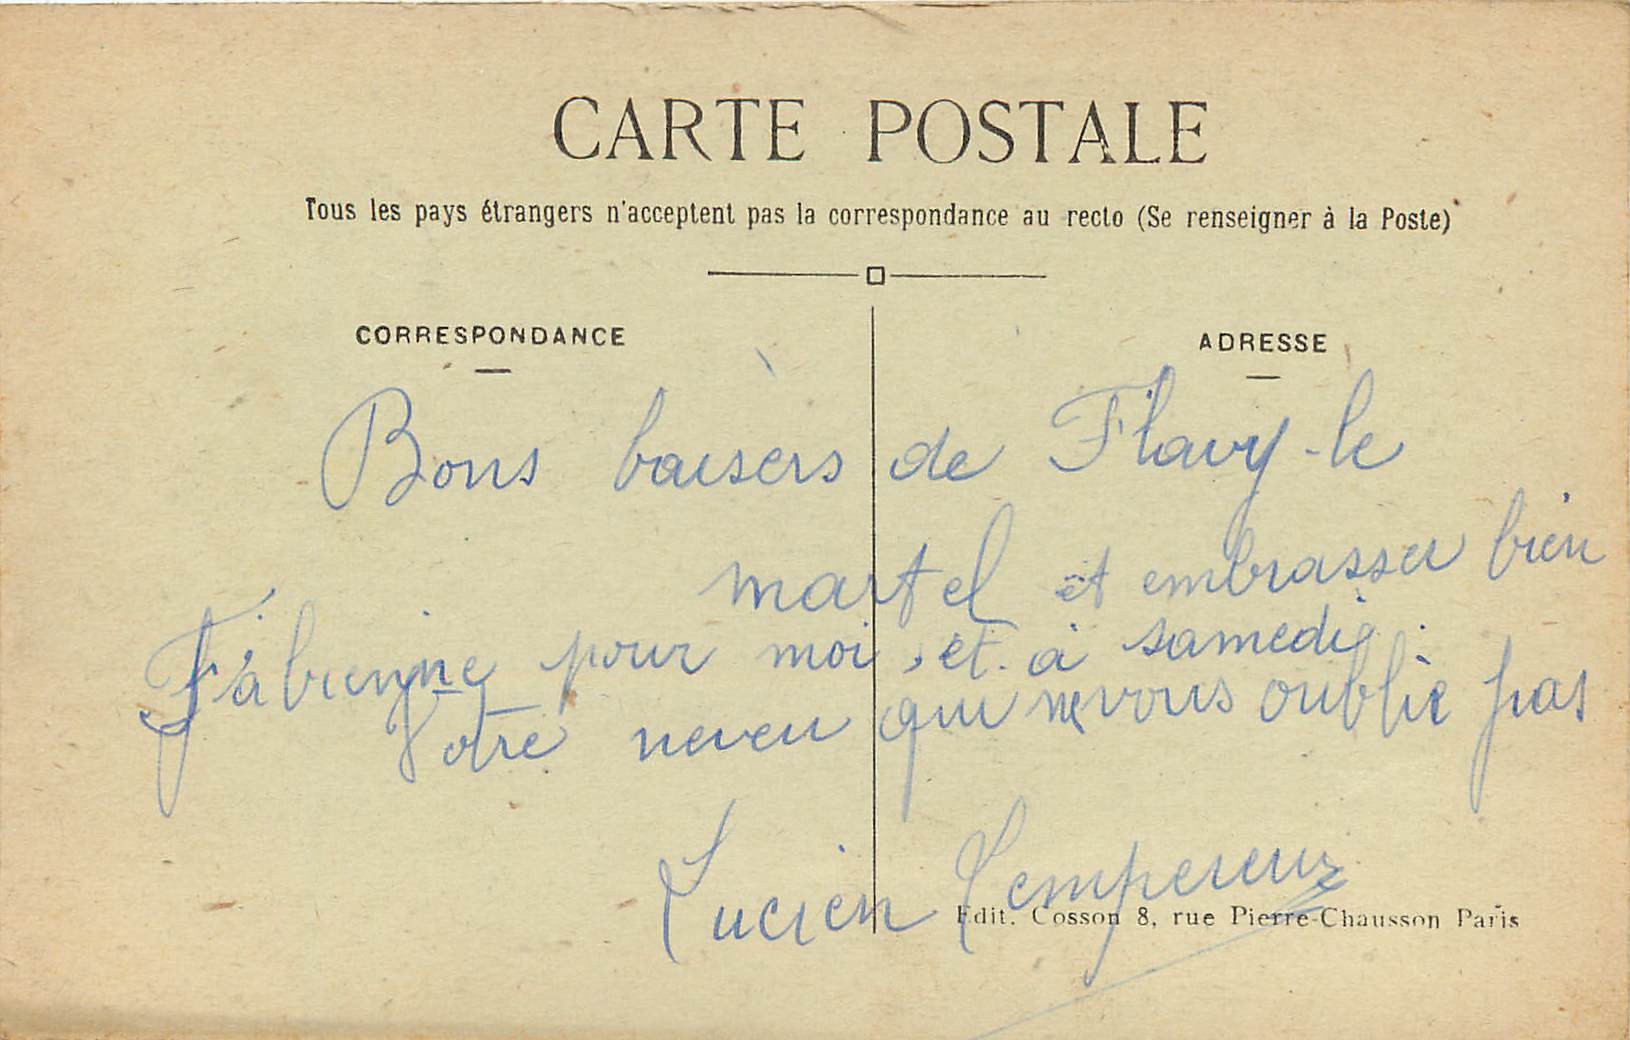 CARTE POSTALE
Tous les pays étrangers n'acceptent pas la correspondance au recto (Se renseigner à la Poste)
CORRESPONDANCE
ADRESSE
Bons baisers de Flavy-le
martel et embrasser bien
Fabienne pour moi, et. à samedi.
Votre neveu qui ne vous oublie pas
Lucien Lempereur
Edit. Cosson 8, rue Pierre-Chausson Paris